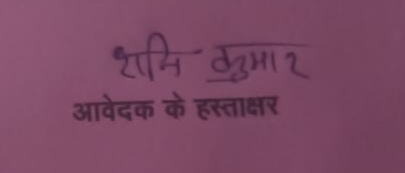 शनि कुमार
आवेदक के हस्ताक्षर